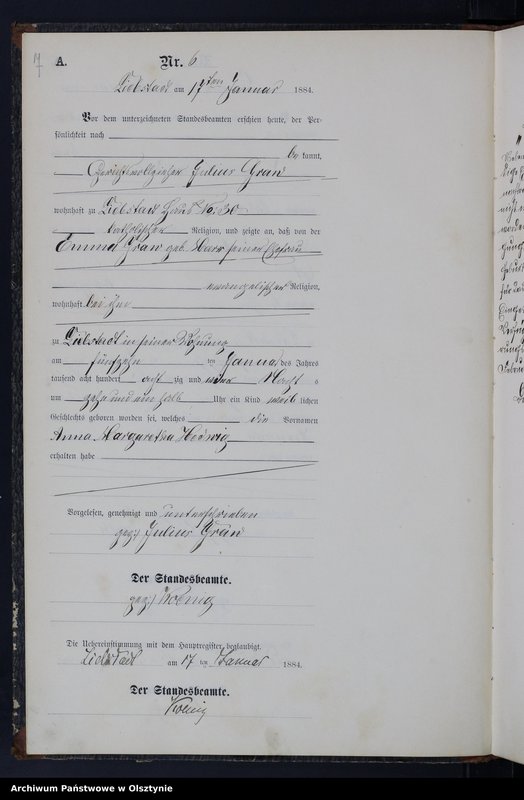 A. Nr. 6
Liebstadt am 17ten Januar 1884.
Vor dem unterzeichneten Standesbeamten erschien heute, der Per-
sönlichkeit nach
bekannt,
Gerichtsvollzieher Julius Grau
wohnhaft zu Liebstadt Haus No 30
katholischer Religion, und zeigte an, daß von der
Emma Grau geb. seiner Ehefrau
evangelischer Religion,
wohnhaft bei ihm
zu Liebstadt in seiner Wohnung
am fünfzehn ten Januar des Jahres
tausend acht hundert acht zig und vier Nachts
um zehn und ein halb Uhr ein Kind weib lichen
Geschlechts geboren worden sei, welches die Vornamen
Anna Margaretha Hedwig
erhalten habe
Vorgelesen, genehmigt und unterschrieben
gez:) Julius Grau
Der Standesbeamte.
gez:) Koenig
Die Uebereinstimmung mit dem Hauptregister beglaubigt.
Liebstadt am 17 ten Januar 1884.
Der Standesbeamte.
Koenig
Archiwum Państwowe w Olsztynie